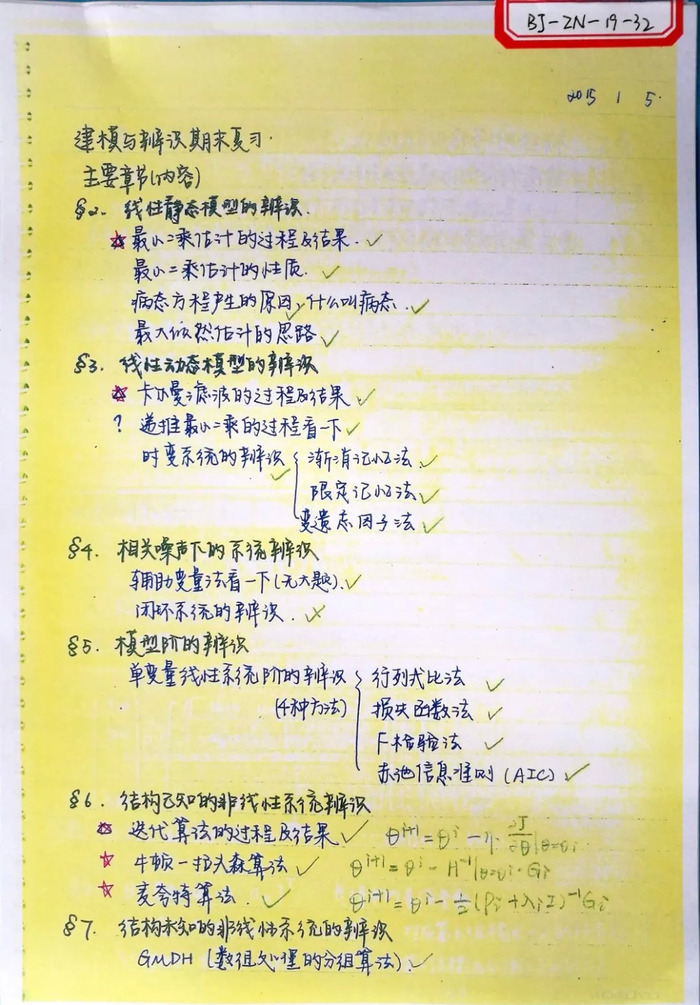 BJ-ZN-19-32
2015 1 5.
建模与辨识期末复习.
主要章节(内容)
§2. 线性静态模型的辨识.
☆ 最小二乘估计的过程及结果. ✓
最小二乘估计的性质. ✓
病态方程产生的原因, 什么叫病态. ✓
最大似然估计的思路 ✓
§3. 线性动态模型的辨识
☆ 卡尔曼滤波的过程及结果 ✓
? 递推最小二乘的过程看一下 ✓
时变系统的辨识 ✓ { 渐消记忆法 ✓
限定记忆法 ✓
变遗忘因子法 ✓
§4. 相关噪声下的系统辨识
辅助变量法看一下(无大题). ✓
闭环系统的辨识. ✗
§5. 模型阶的辨识
单变量线性系统阶的辨识 { 行列式比法 ✓
(4种方法) 损失函数法 ✓
F检验法 ✓
赤池信息准则 (AIC) ✓
§6. 结构已知的非线性系统辨识
☆ 迭代算法的过程及结果 ✓ θ^{i+1} = θ^i - η · ∂J/∂θ|θ=θi
☆ 牛顿-拉夫森算法 ✓ θ^{i+1} = θ^i - H^{-1}|θ=θi · Gi
☆ 麦夸特算法. ✓ θ^{i+1} = θ^i - ½(Pi + λiI)^{-1}Gi
§7. 结构未知的非线性系统的辨识
GMDH (数组处理的分组算法). ✓